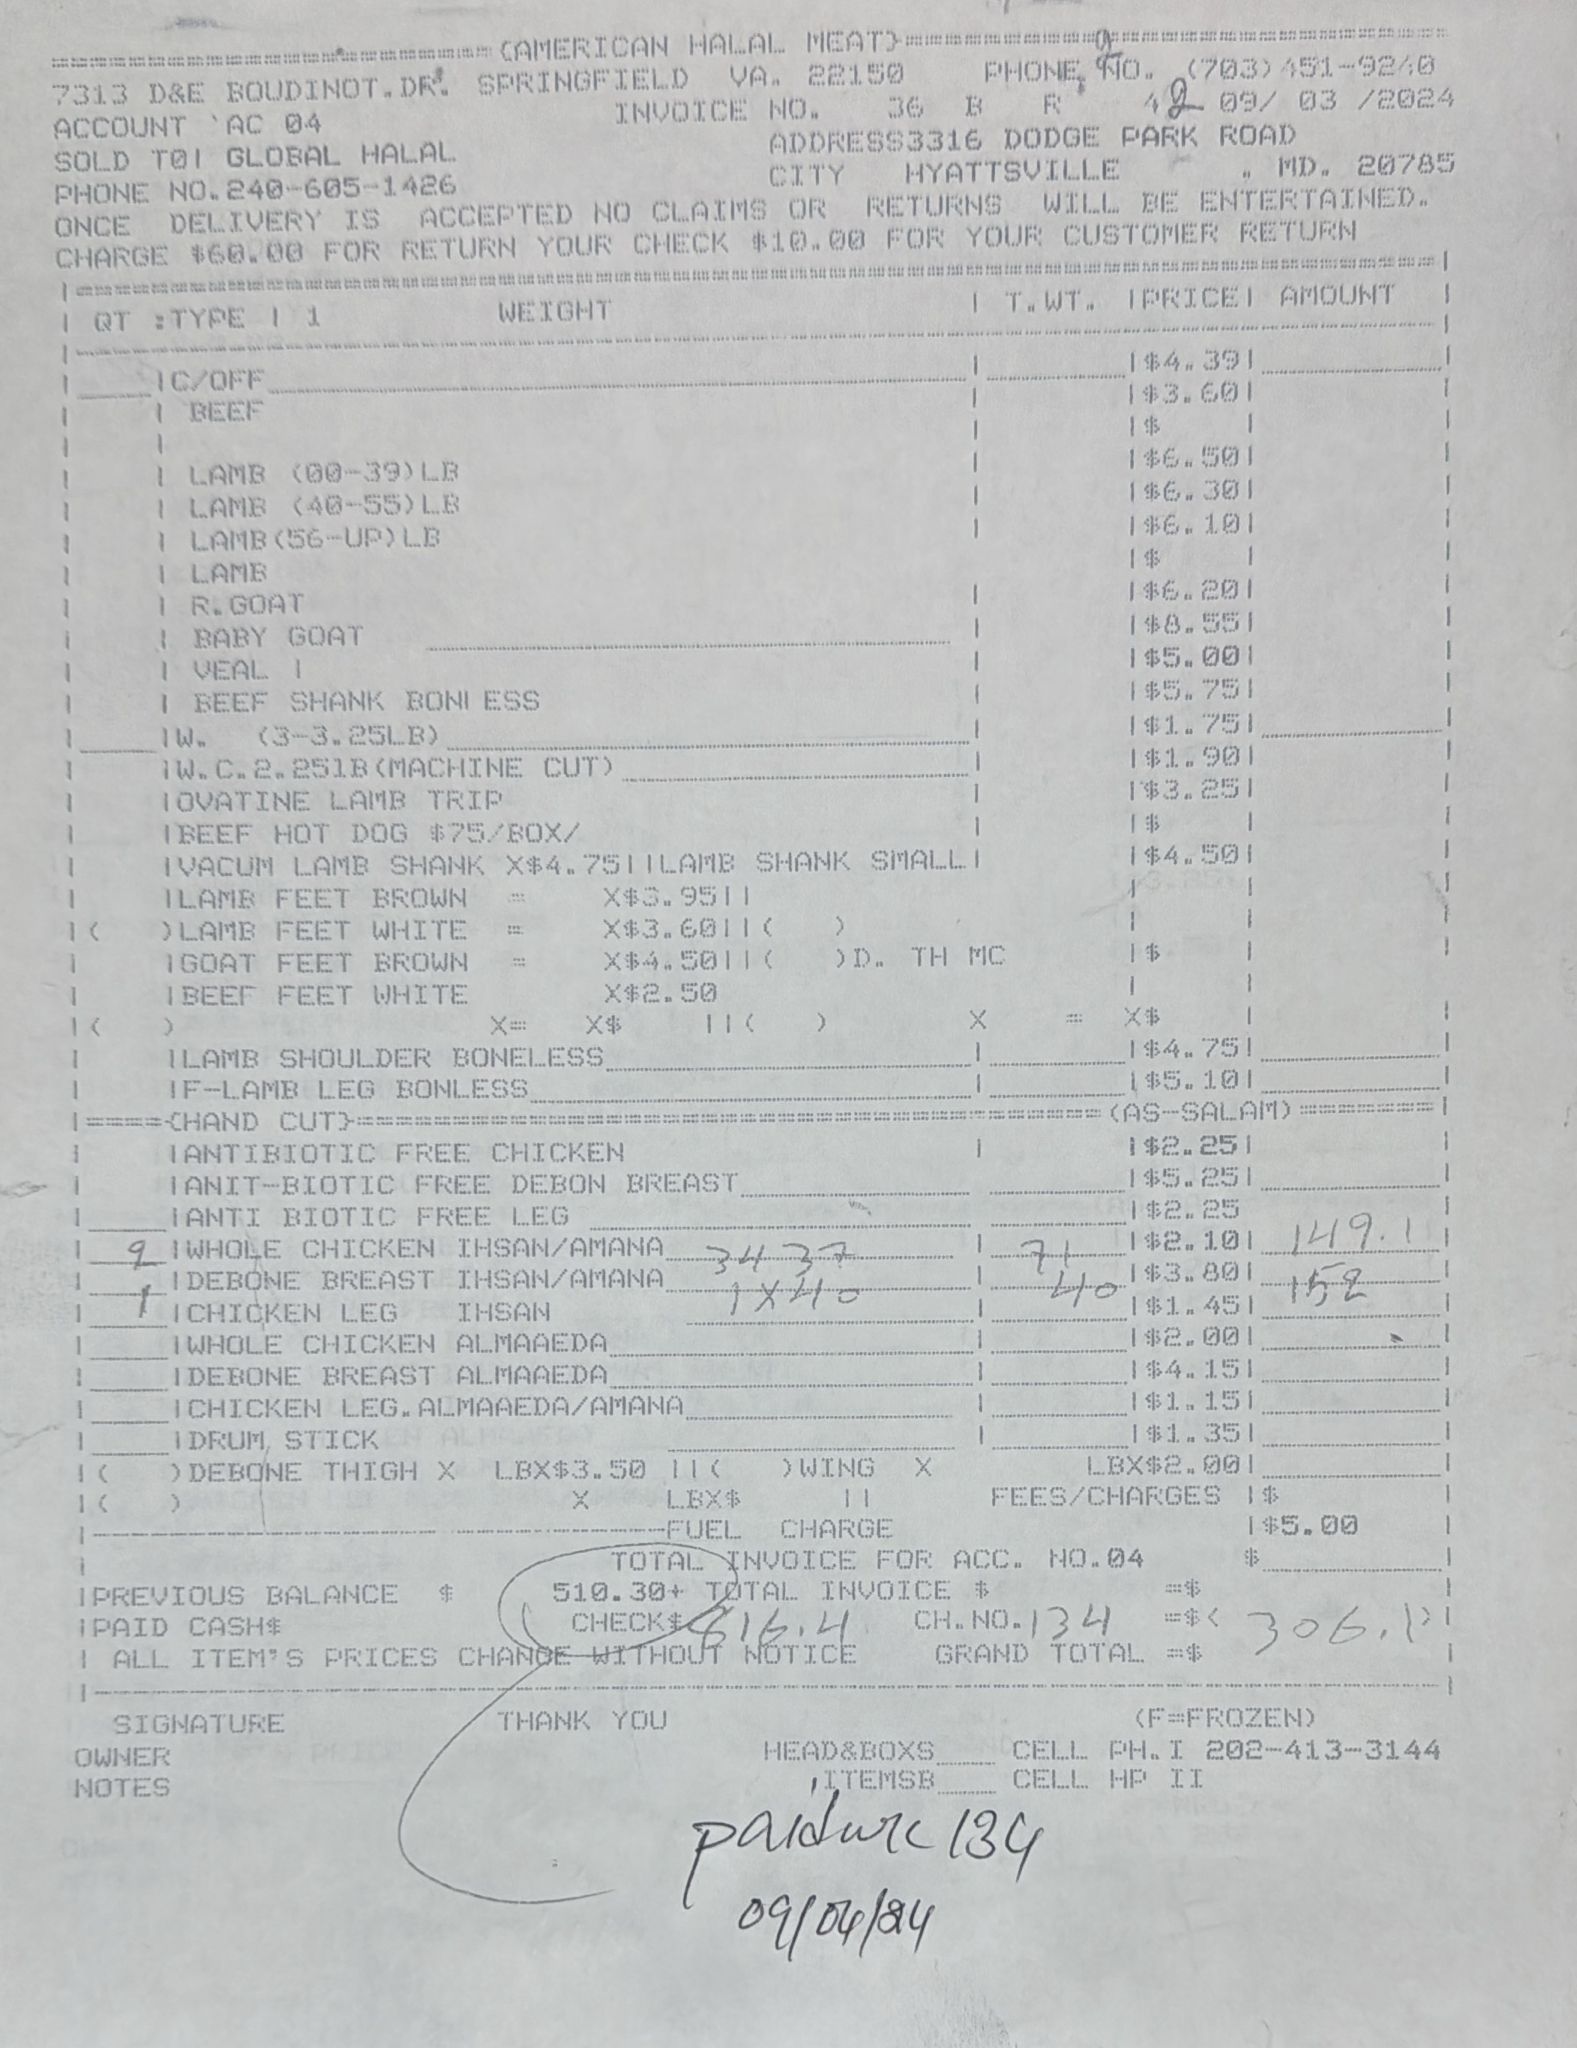 {AMERICAN HALAL MEAT}
7313 D&E BOUDINOT.DR. SPRINGFIELD VA. 22150 PHONE NO. (703)451-9240
INVOICE NO. 36 B R 42 09/ 03 /2024
ACCOUNT 'AC 04 ADDRESS3316 DODGE PARK ROAD
SOLD TO| GLOBAL HALAL CITY HYATTSVILLE . MD. 20785
PHONE NO.240-605-1426
ONCE DELIVERY IS ACCEPTED NO CLAIMS OR RETURNS WILL BE ENTERTAINED.
CHARGE $60.00 FOR RETURN YOUR CHECK $10.00 FOR YOUR CUSTOMER RETURN
| QT :TYPE | 1 WEIGHT | T.WT. |PRICE| AMOUNT
|C/OFF |$4.39|
| BEEF |$3.60|
| |$ |
| LAMB (00-39)LB |$6.50|
| LAMB (40-55)LB |$6.30|
| LAMB(56-UP)LB |$6.10|
| LAMB |$ |
| R.GOAT |$6.20|
| BABY GOAT |$8.55|
| VEAL | |$5.00|
| BEEF SHANK BONLESS |$5.75|
|W. (3-3.25LB) |$1.75|
|W.C.2.251B(MACHINE CUT) |$1.90|
|OVATINE LAMB TRIP |$3.25|
|BEEF HOT DOG $75/BOX/ |$ |
|VACUM LAMB SHANK X$4.75||LAMB SHANK SMALL| |$4.50|
|LAMB FEET BROWN = X$3.95||
|( )LAMB FEET WHITE = X$3.60||( )
|GOAT FEET BROWN = X$4.50||( )D. TH MC |$
|BEEF FEET WHITE X$2.50
|( ) X= X$ ||( ) X = X$
|LAMB SHOULDER BONELESS |$4.75|
|F-LAMB LEG BONLESS |$5.10|
|====={HAND CUT}=====(AS-SALAM)=======|
|ANTIBIOTIC FREE CHICKEN |$2.25|
|ANIT-BIOTIC FREE DEBON BREAST |$5.25|
|ANTI BIOTIC FREE LEG |$2.25
2 |WHOLE CHICKEN IHSAN/AMANA 34 37 | 71 |$2.10| 149.1
1 |DEBONE BREAST IHSAN/AMANA 1X40 | 40 |$3.80| 152
|CHICKEN LEG IHSAN |$1.45|
|WHOLE CHICKEN ALMAAEDA |$2.00|
|DEBONE BREAST ALMAAEDA |$4.15|
|CHICKEN LEG.ALMAAEDA/AMANA |$1.15|
|DRUM STICK |$1.35|
|( )DEBONE THIGH X LBX$3.50 ||( )WING X LBX$2.00|
|( ) X LBX$ || FEES/CHARGES |$
FUEL CHARGE |$5.00
TOTAL INVOICE FOR ACC. NO.04 $
|PREVIOUS BALANCE $ 510.30+ TOTAL INVOICE $ =$
|PAID CASH$ CHECK$ 816.4 CH.NO. 134 =$( 306.1)
| ALL ITEM'S PRICES CHANGE WITHOUT NOTICE GRAND TOTAL =$
SIGNATURE THANK YOU (F=FROZEN)
OWNER HEAD&BOXS____ CELL PH.I 202-413-3144
NOTES ITEMSB____ CELL HP II
134
09/04/24